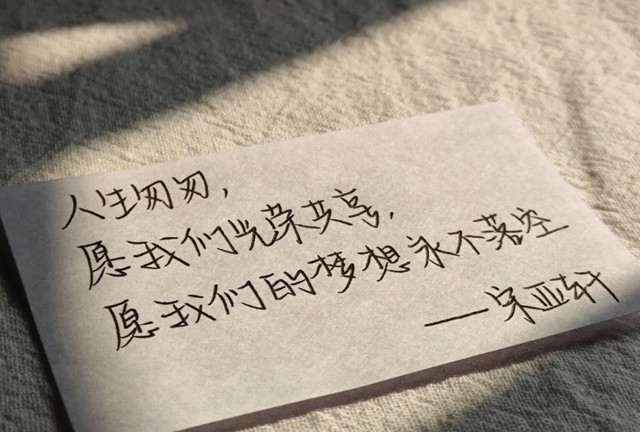 人生匆匆,
愿我们光荣共享,
愿我们的梦想永不落空
——宋亚轩